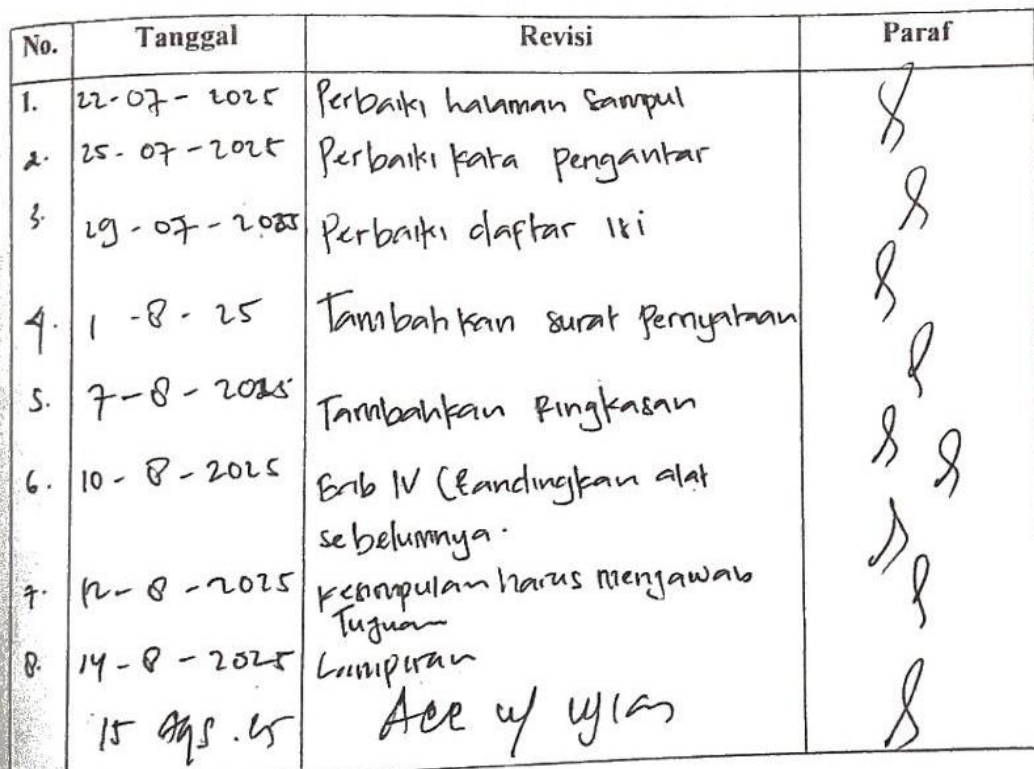 No. Tanggal Revisi Paraf
1. 22-07-2025 Perbaiki halaman Sampul
2. 25-07-2025 Perbaiki kata pengantar
3. 29-07-2025 Perbaiki daftar Isi
4. 1-8-25 Tambahkan surat Pernyataan
5. 7-8-2025 Tambahkan Ringkasan
6. 10-8-2025 Bab IV (Bandingkan alat
sebelumnya.
7. 12-8-2025 Kesimpulan harus menjawab
Tujuan
8. 14-8-2025 Lampiran
15 Ags. 25 Acc u/ ujian